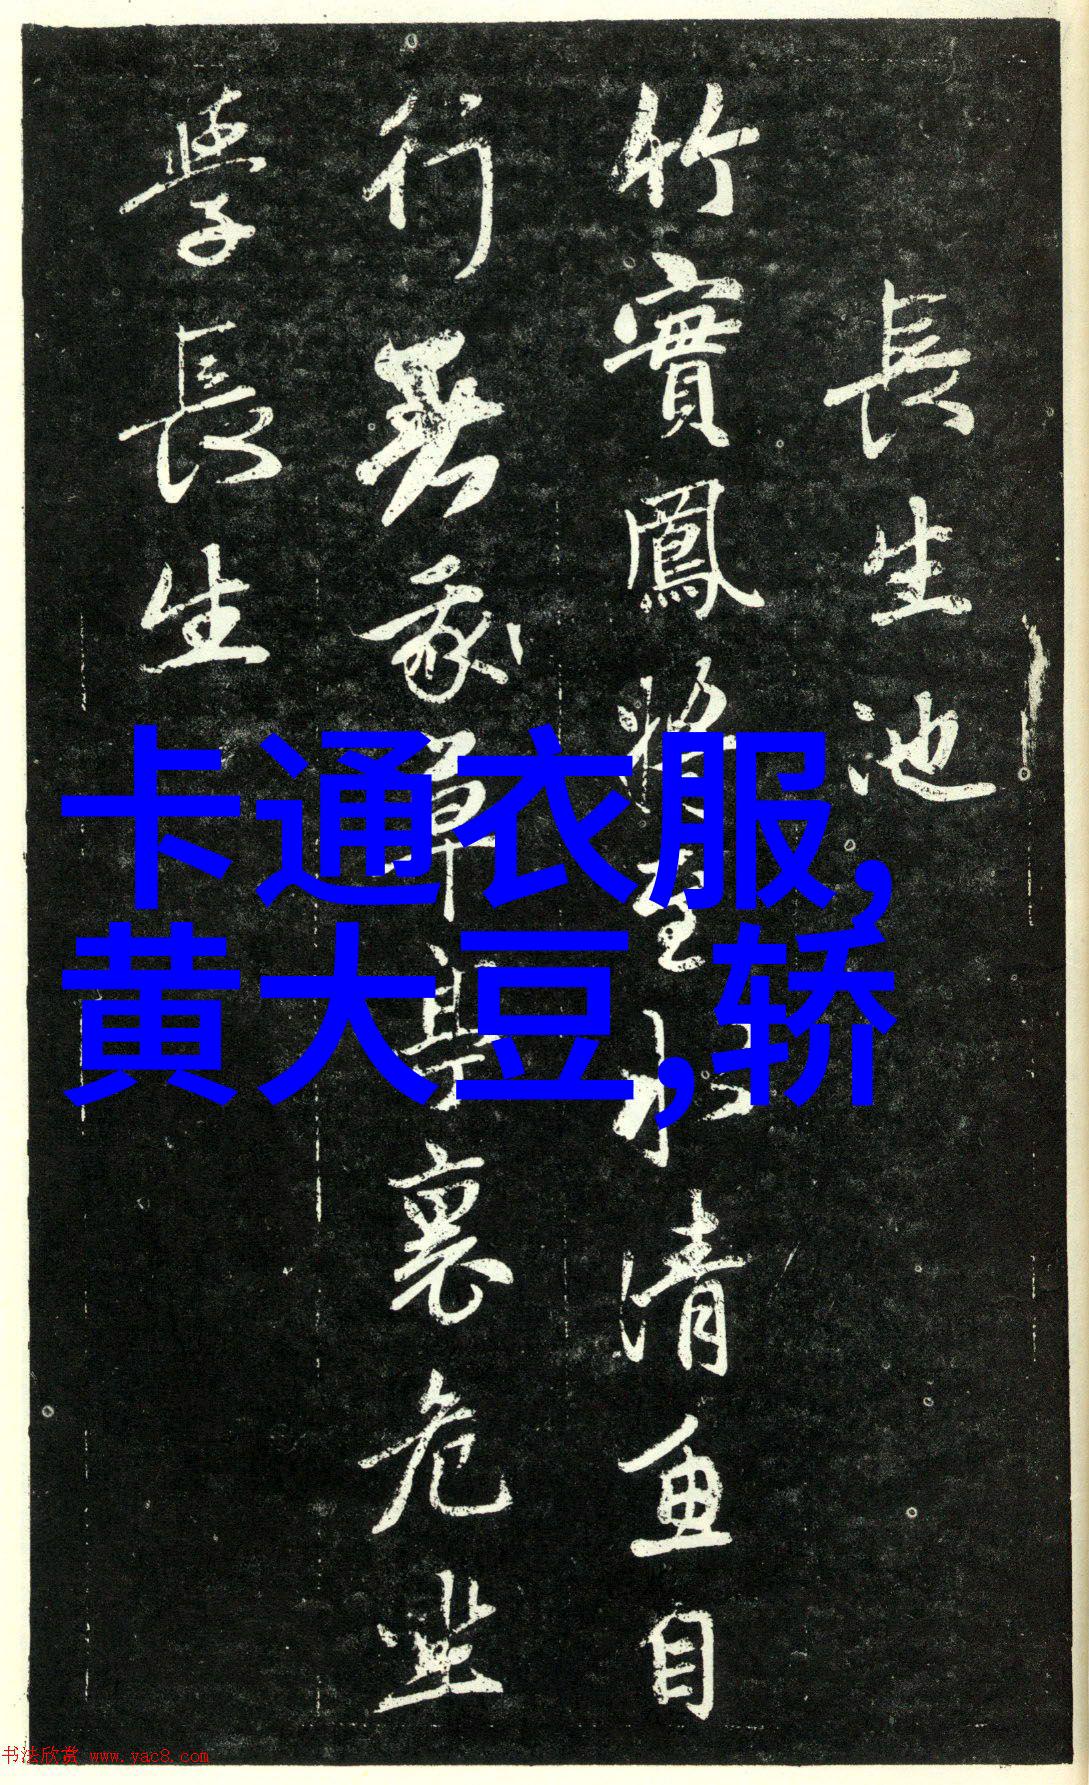 長生池
竹實鳳將至水清魚自
行無家草具裏危坐
學長生
卡通衣服,
黄大豆,轿
书法欣赏 www.yac8.com